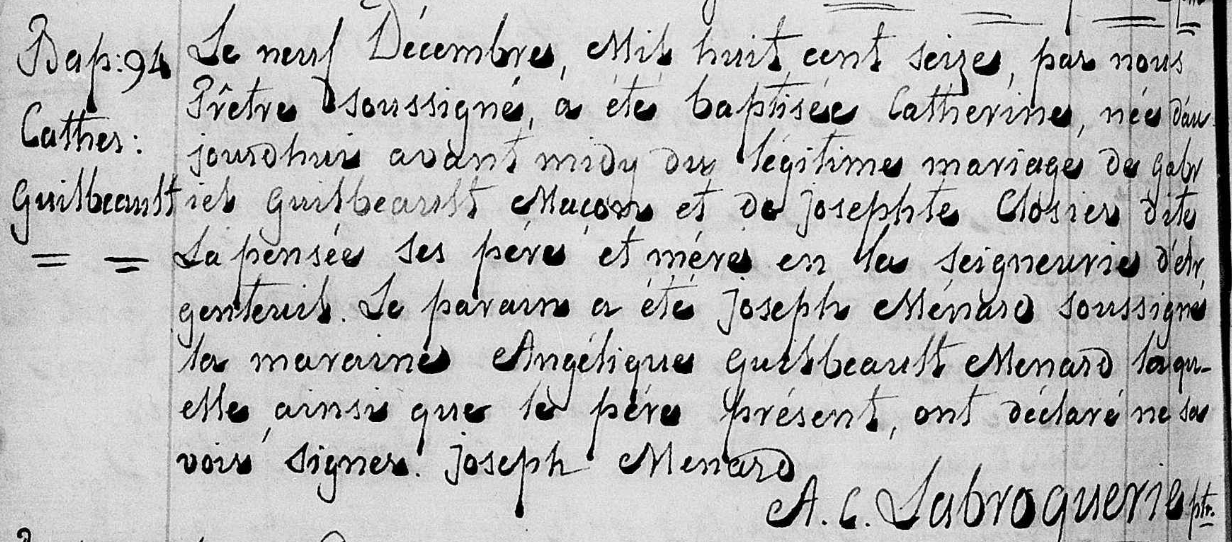 Bap: 94
Cather:
Guilbeault
Le neuf Décembre, Mil huit cent seize, par nous
Prêtre soussigné, a été baptisée Catherine, née d'au
jourdhui avant midy du légitime mariage de gabr
iel Guilbeault Maçon et de Josephte Closier dite
Lapensée ses pére et mére en la seigneurie d'Ar
genteuil. Le parain a été Joseph Ménard soussigné
la maraine Angélique Guilbeault Menard laqu-
elle, ainsi que le pére présent, ont déclaré ne sa
voir signer. Joseph Menard
A. C. Labroquerie ptr.